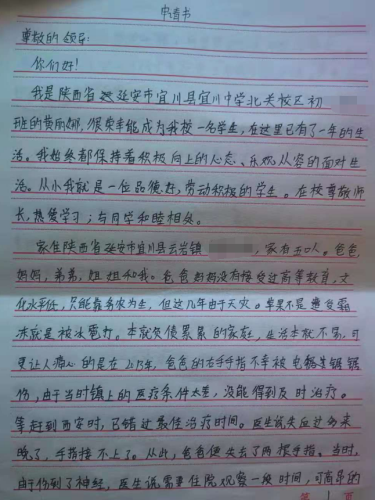 申请书
尊敬的领导:
你们好!
我是陕西省延安市宜川县宜川中学北关校区初
班的黄丽娜,很荣幸能成为我校一名学生,在这里已有了一年的生
活。我始终都保持着积极向上的心态、乐观从容的面对生
活。从小我就是一位品德好,劳动积极的学生。在校尊敬师
长,热爱学习;与同学和睦相处。
家住陕西省延安市宜川县云岩镇 ,家有五口人。爸爸
妈妈,弟弟,姐姐和我。爸爸妈妈没有接受过高等教育,文
化水平低,只能靠务农为生,但这几年由于天灾。苹果不是遭受霜
冻就是被冰雹打。本就负债累累的家庭,生活本就不易,可
更让人痛心的是在2013年,爸爸的右手手指不幸被电锯锯
伤,由于当时镇上的医疗条件太差,没能得到及时治疗。
等赶到西安时,已错过最佳治疗时间。医生说失血过多来
晚了,手指接不上了。从此,爸爸便失去了两根手指。当时,
由于伤到了神经,医生说需要住院观察一段时间,可高昂的
第 1 页